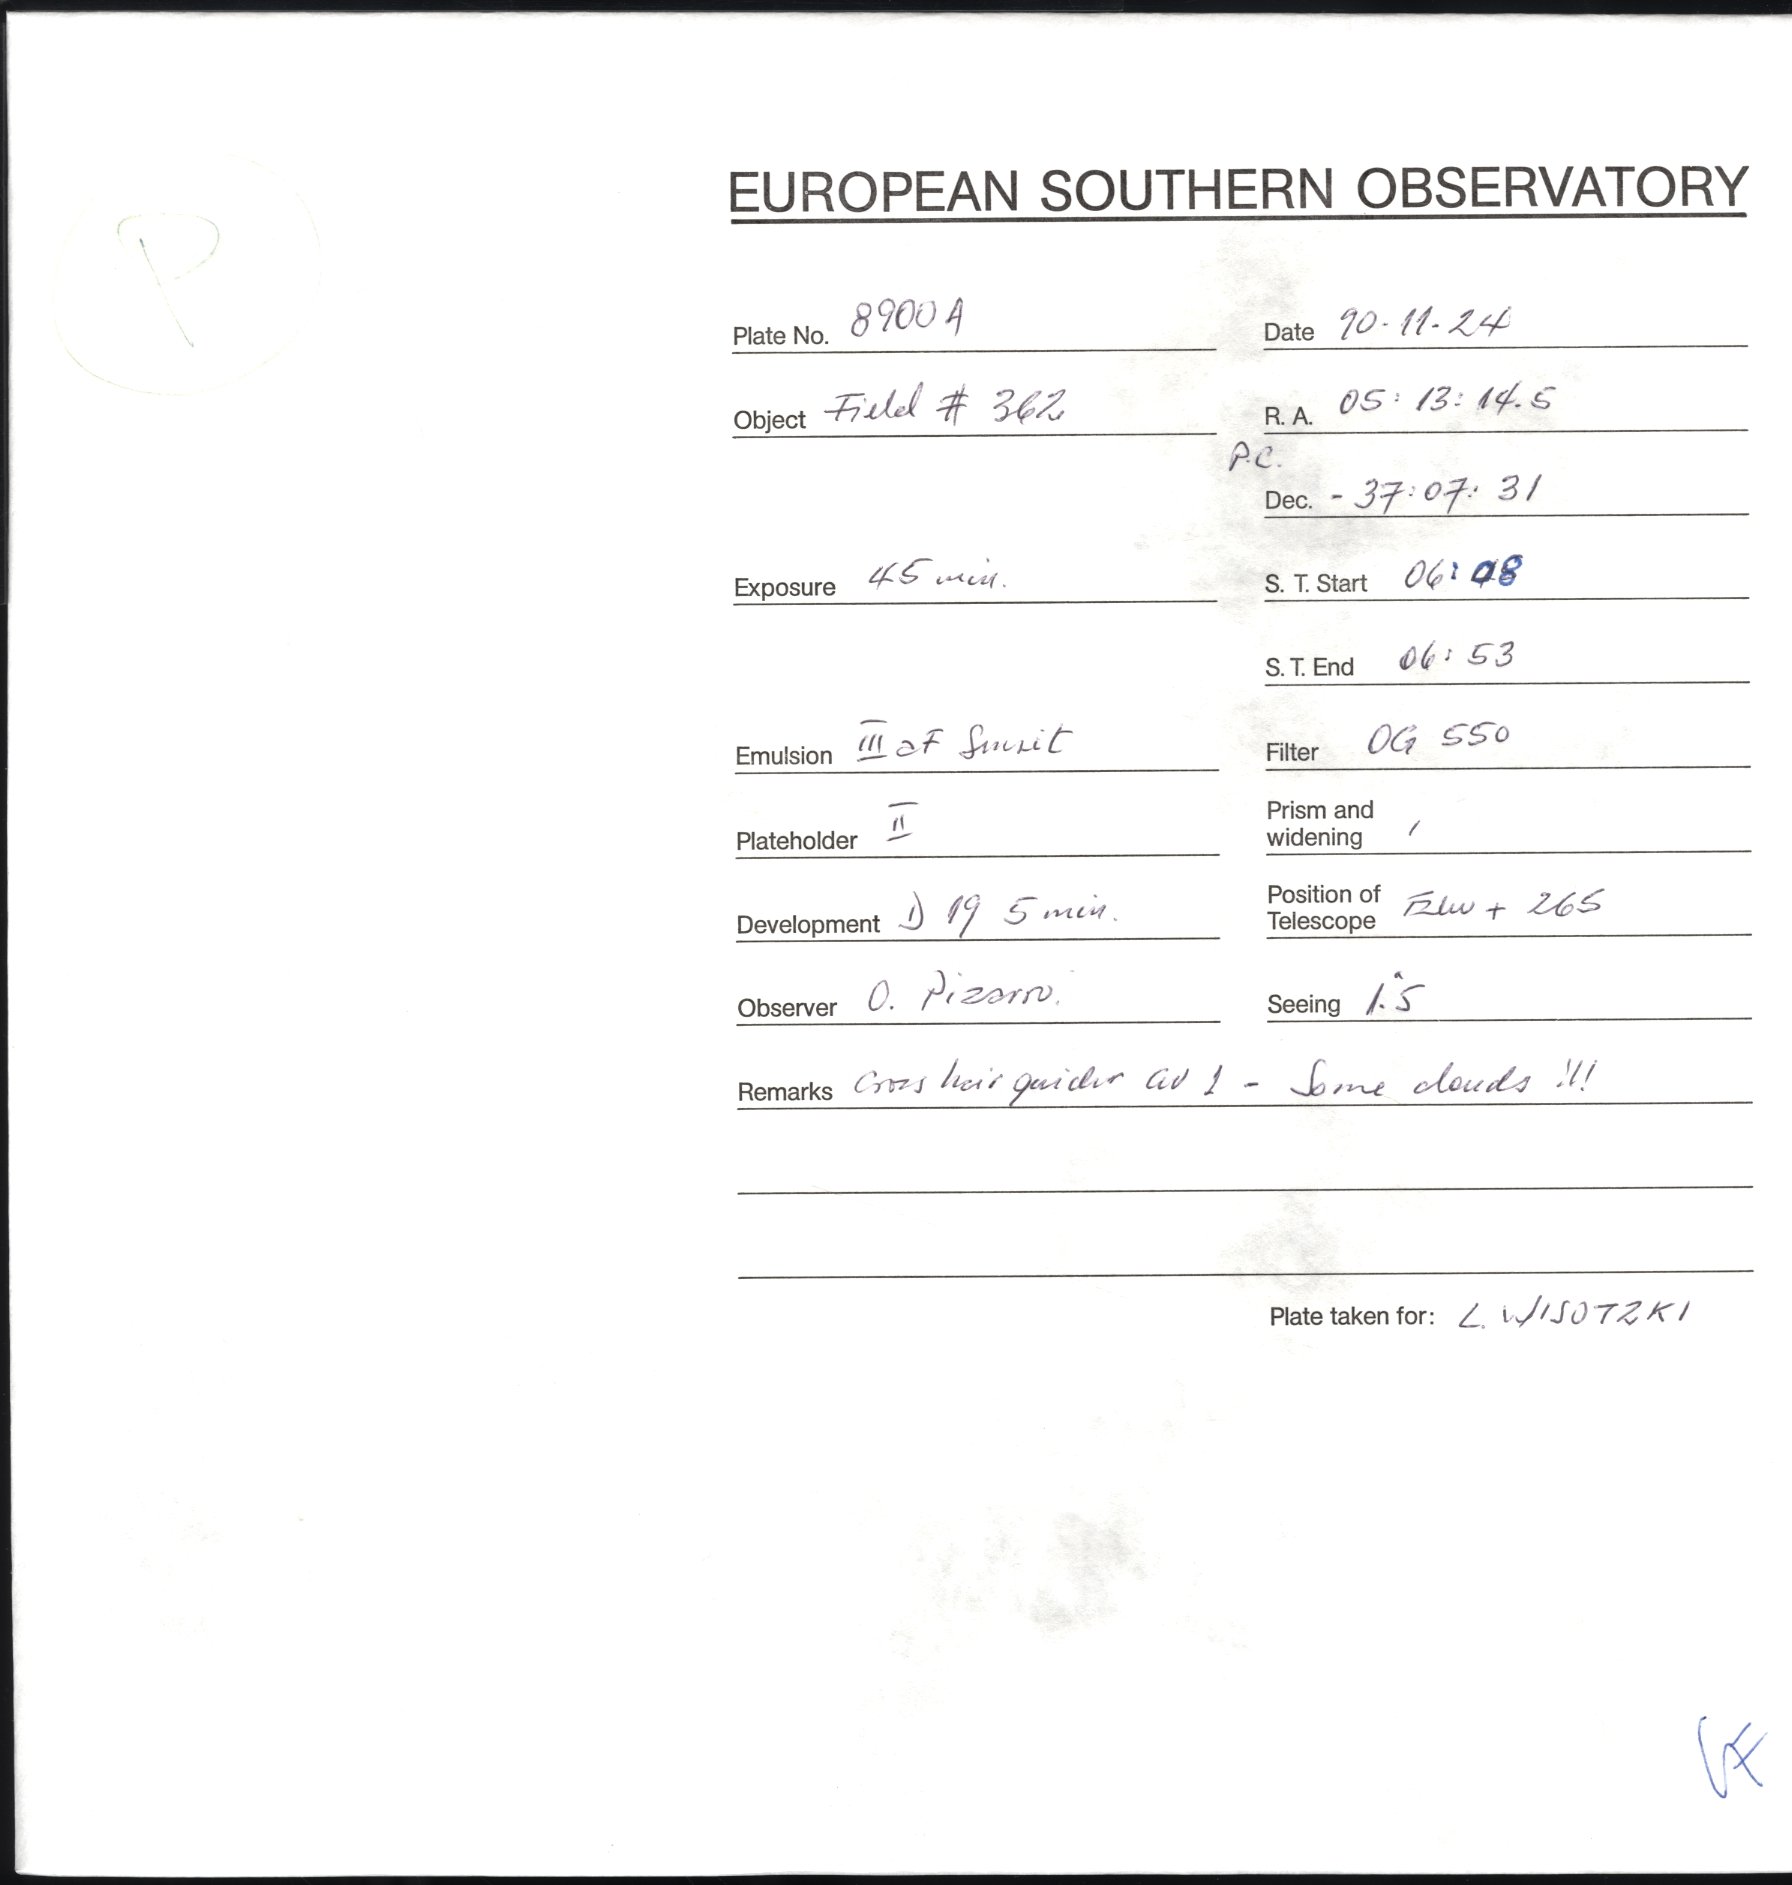 P
EUROPEAN SOUTHERN OBSERVATORY
Plate No. 8900 A
Date 90-11-24
Object Field # 362
R. A. 05:13:14.5
P.C.
Dec. -37:07:31
Exposure 45 min.
S. T. Start 06:08
S. T. End 06:53
Emulsion III aF
Filter OG 550
Plateholder II
Prism and
widening /
Development D 19 5 min.
Position of
Telescope + 265
Observer O. Pizarro.
Seeing 1."5
Remarks Cross hair guider 1 - Some clouds !!!
Plate taken for: L. WISOTZKI